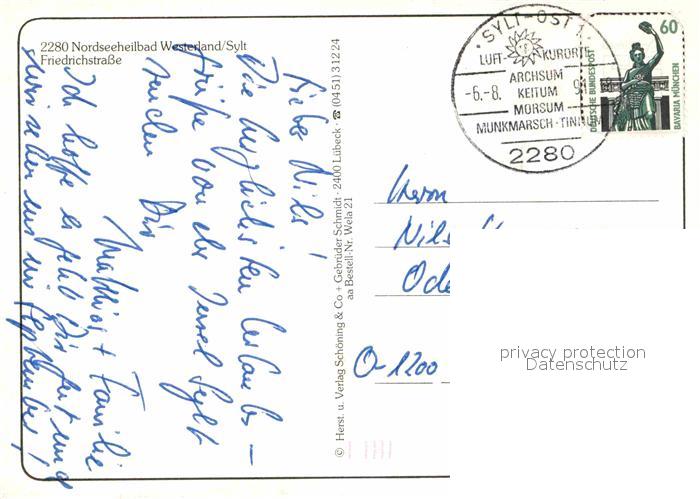 2280 Nordseeheilbad Westerland/Sylt
Friedrichstraße
Lieber Nils!
Die herzlichsten Urlaubs –
grüße von der Insel Sylt
senden Dir
Matthias + Familie
Ich hoffe es geht Dir gut und
wir sehen uns im September!
© Herst. u. Verlag Schöning & Co + Gebrüder Schmidt · 2400 Lübeck · ☎ (04 51) 3 12 24
aa Bestell-Nr. Wela 21
SYLT-OST 1
LUFT KURORTE
ARCHSUM
-6.-8. KEITUM 9
MORSUM
MUNKMARSCH · TINNUM
2280
60
DEUTSCHE BUNDESPOST
BAVARIA MÜNCHEN
Herrn
Nils
Ode
O-1200
privacy protection
Datenschutz